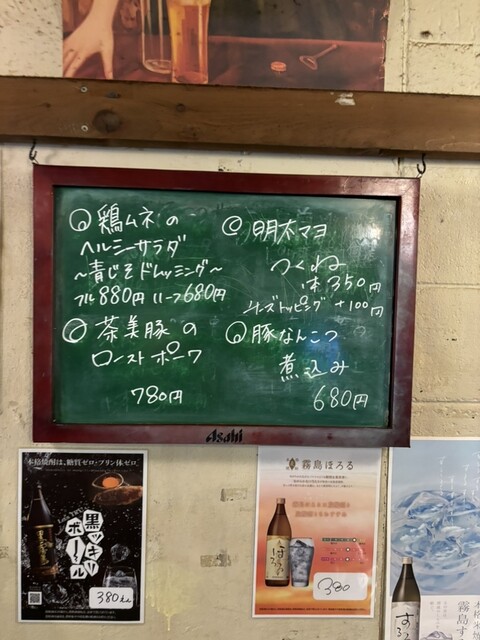 鶏ムネの
ヘルシーサラダ
～青じそドレッシング～
フル880円 ハーフ680円
茶美豚の
ローストポーク
780円
明太マヨ
つくね
1本350円
チーズトッピング +100円
豚なんこつ
煮込み
680円
Asahi
本格焼酎は、糖質ゼロ・プリン体ゼロ。
黒ッキー
ボール
380えん
霧島ほろる
380
本格芋焼
霧島す